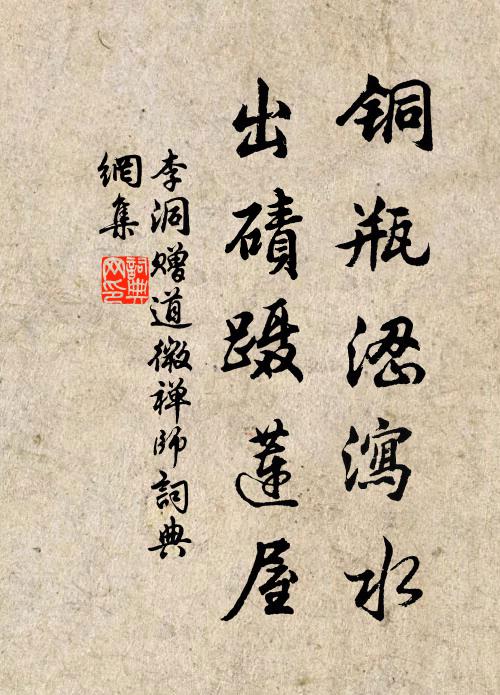 铜瓶涩瀉水
出磧蹑蓮层
李洞赠道微禅师詞典
網集
詞典
网印